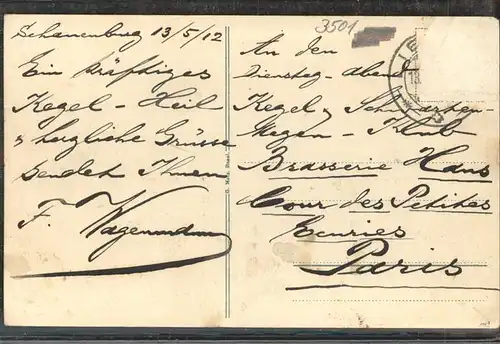 Schauenburg 13/5/12
Ein kräftiges
Kegel-Heil
& herzliche Grüsse
sendet Ihnen
F. Wagenmann
3501
An den
Dienstag-Abend
Kegel &
Magen-Klub
Brasserie Hans
Cour des Petites
Ecuries
Paris